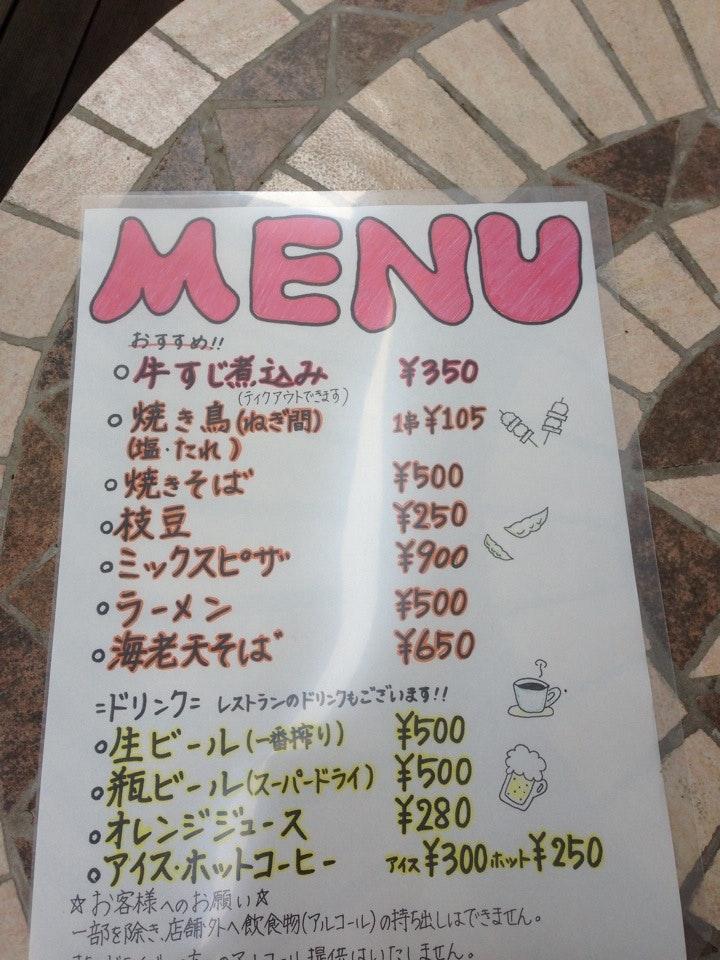 MENU
おすすめ!!
○牛すじ煮込み ¥350
(テイクアウトできます)
○焼き鳥(ねぎ間) 1串¥105
(塩・たれ)
○焼きそば ¥500
○枝豆 ¥250
○ミックスピザ ¥900
○ラーメン ¥500
○海老天そば ¥650
=ドリンク= レストランのドリンクもございます!!
○生ビール(一番搾り) ¥500
○瓶ビール(スーパードライ) ¥500
○オレンジジュース ¥280
○アイス・ホットコーヒー アイス¥300 ホット¥250
☆お客様へのお願い☆
一部を除き、店舗外へ飲食物(アルコール)の持ち出しはできません。
のアルコール提供はいたしません。